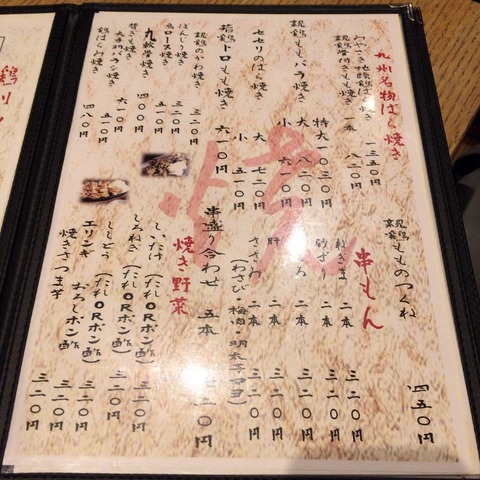 九州名物ばら焼き
みやざき地頭鶏ばら焼き 一三五〇円
親鶏骨付きもも焼き 一本 八二〇円
親鶏ももバラ焼き 特大 一〇三〇円
大 八二〇円
小 六一〇円
セセリのばら焼き 大 七二〇円
小 五一〇円
若鶏トロもも焼き 六一〇円
親鶏のかわ焼き 三二〇円
ぼんじり焼き 三二〇円
肩ロース焼き 五一〇円
丸軟骨焼き 四〇〇円
背ぎも焼き
大手羽バラシ焼き 五一〇円
鶏はらみ焼き 四八〇円
焼
親鶏もものつくね 四五〇円
串もん
ねぎま 二本 三二〇円
砂ずり 二本 三二〇円
二本 三二〇円
肝 二本 三二〇円
ささみ 二本 三二〇円
(わさび・梅肉・明太子マヨ)
串盛り合わせ 五本 七二〇円
焼き野菜
しいたけ (たれORポン酢) 三二〇円
しろねぎ (たれORポン酢) 三二〇円
ししとう (たれORポン酢) 三二〇円
エリンギ おろしポン酢 三二〇円
焼きさつま芋 三二〇円